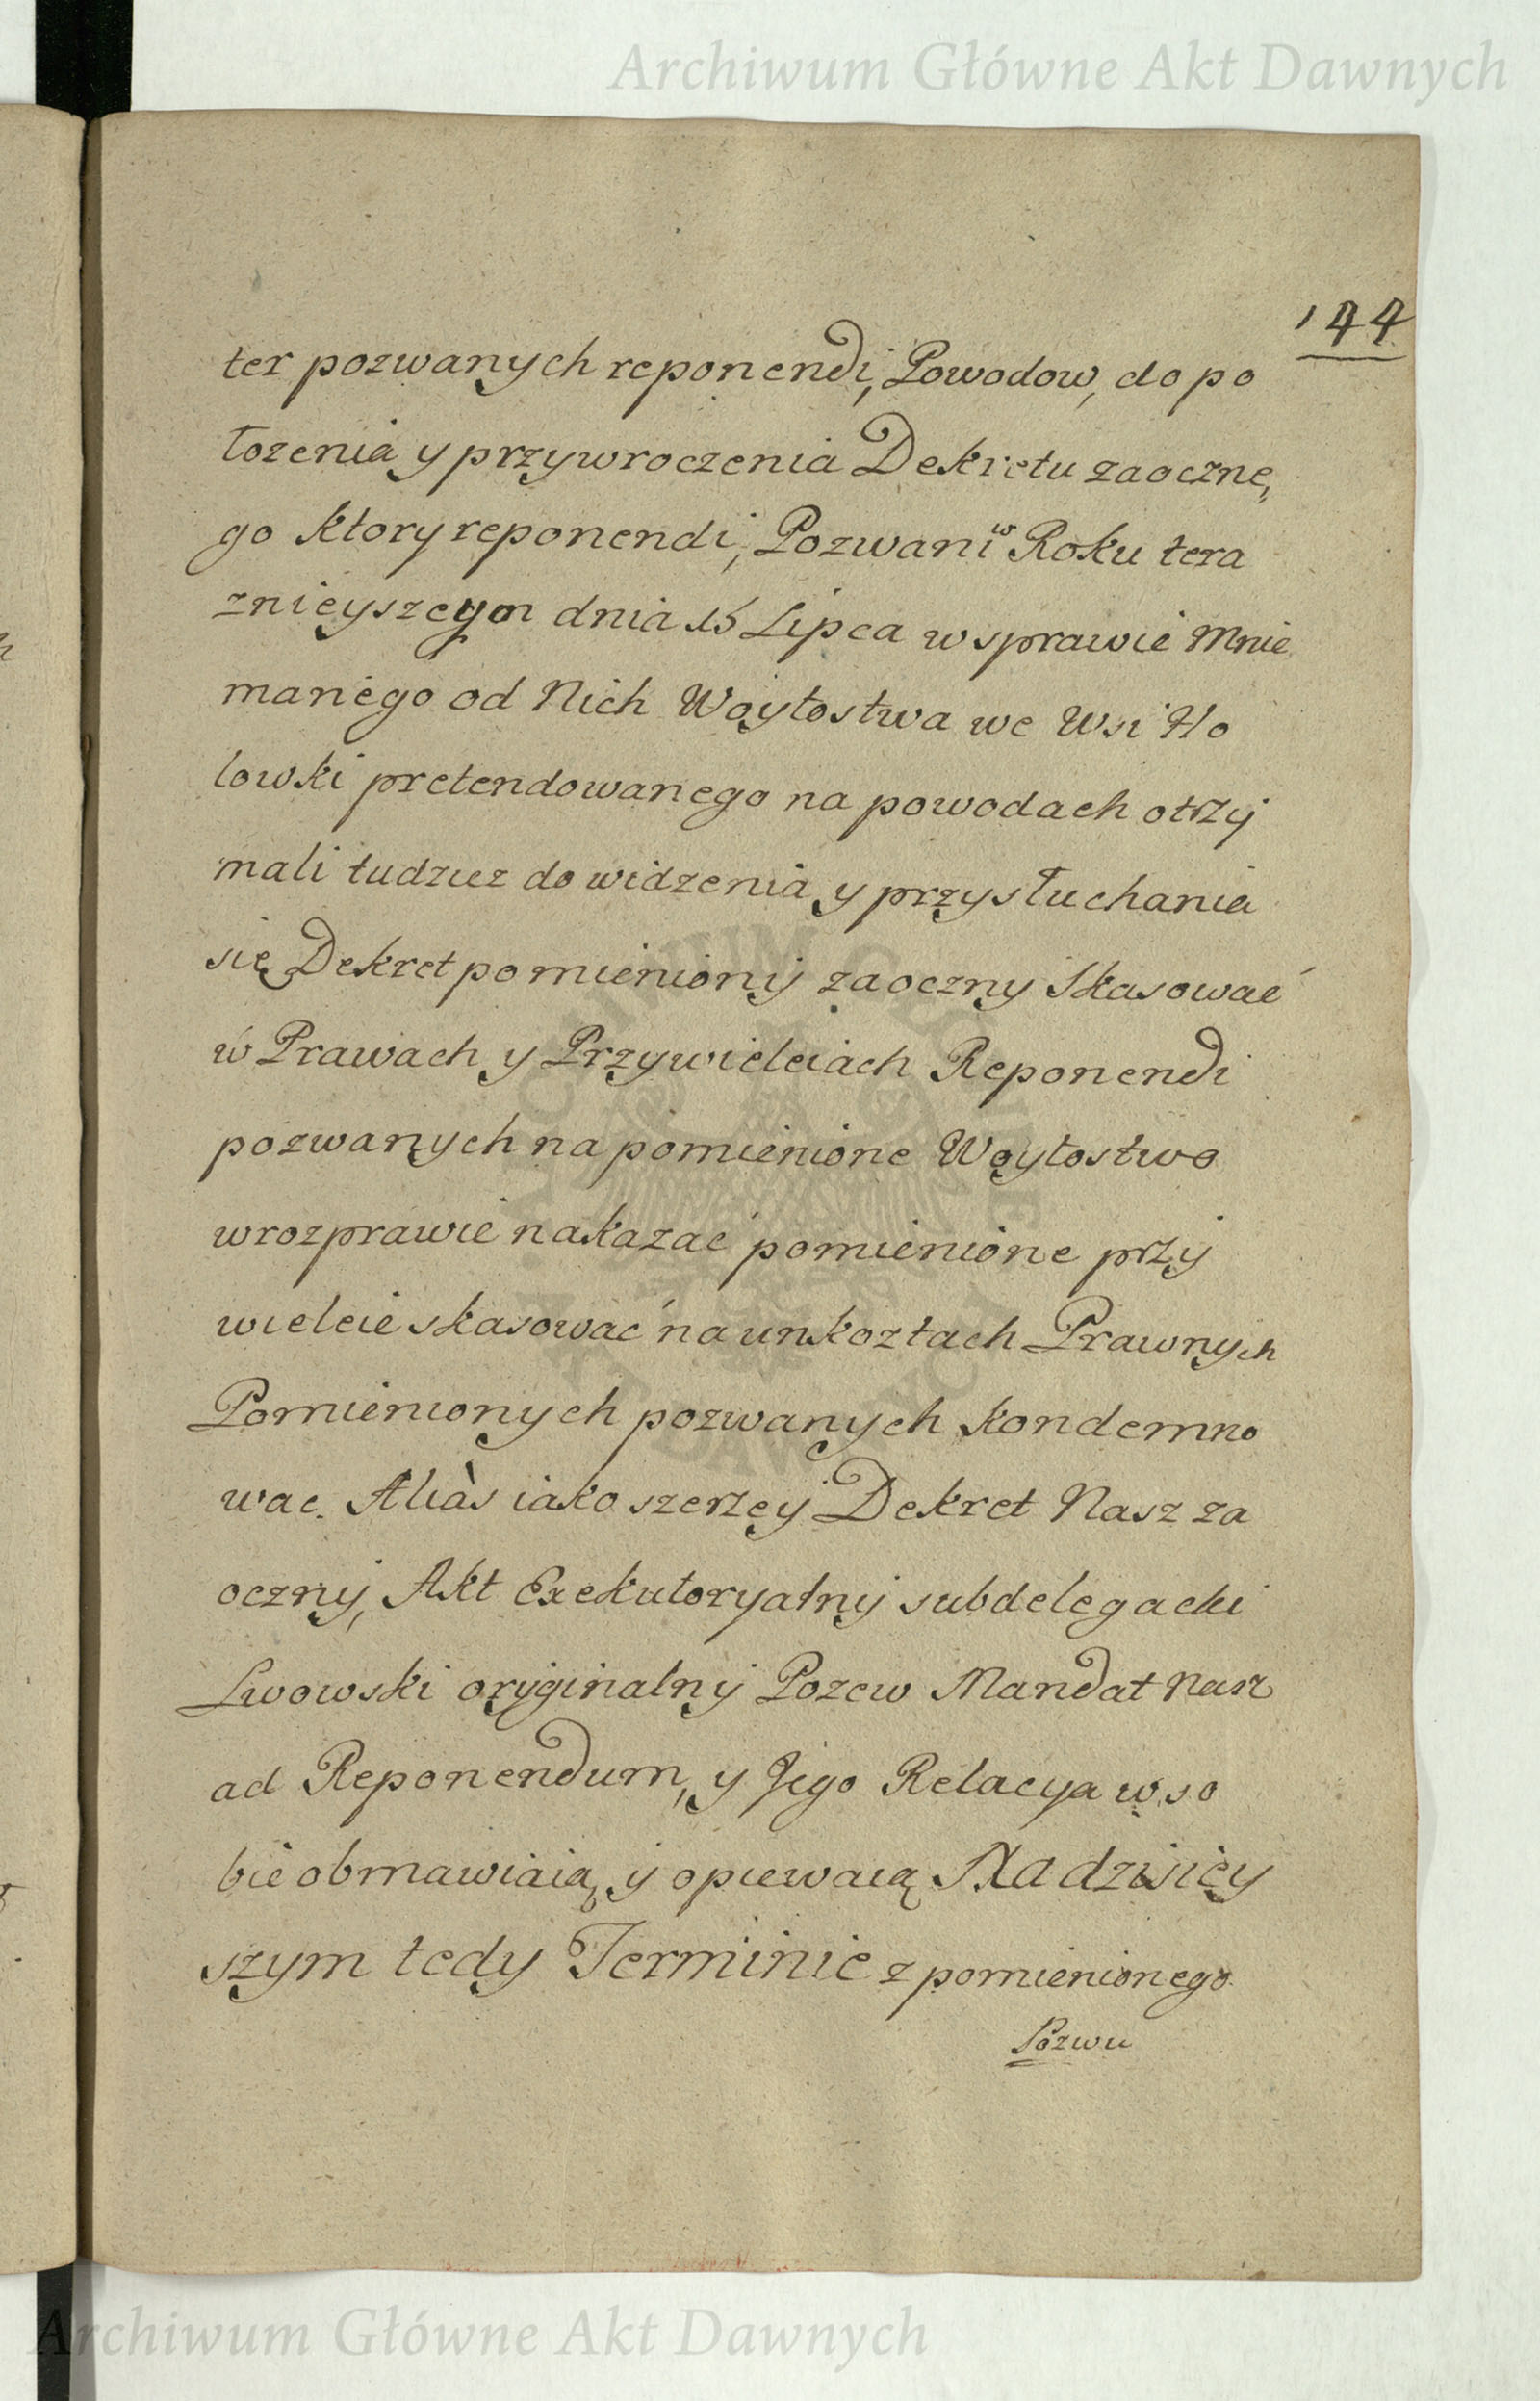 Archiwum Główne Akt Dawnych
144
ter pozwanych reponendi, Powodow, do po
łozenia y przywroczenia Dekretu zaoczne,
go ktory reponendi, Pozwani w Roku tera
znieyszego dnia 15 Lipca w sprawie Mnie
manego od Nich Woytostwa we Wsi Ho
lowki pretendowanego na powodach otrzy
mali tudziez do widzenia y przysłuchania
się Dekret pomieniony zaoczny skasować
w Prawach y Przywieleiach Reponendi
pozwanych na pomienione Woytostwo
w rozprawie nakazać pomienione przy
wieleie skasować na unkoztach Prawnych
Pomienionych pozwanych kondemno
wac. Aliàs iako szerzey Dekret Nasz za
oczny, Akt Exekutoryalny subdelegacki
Lwowski oryginalny Pozew Mandat nasz
ad Reponendum, y Jego Relacya w so
bie obmawiaią, y opiewaią Na dzisiey
szym tedy Terminie z pomienionego
Pozwu
Archiwum Główne Akt Dawnych